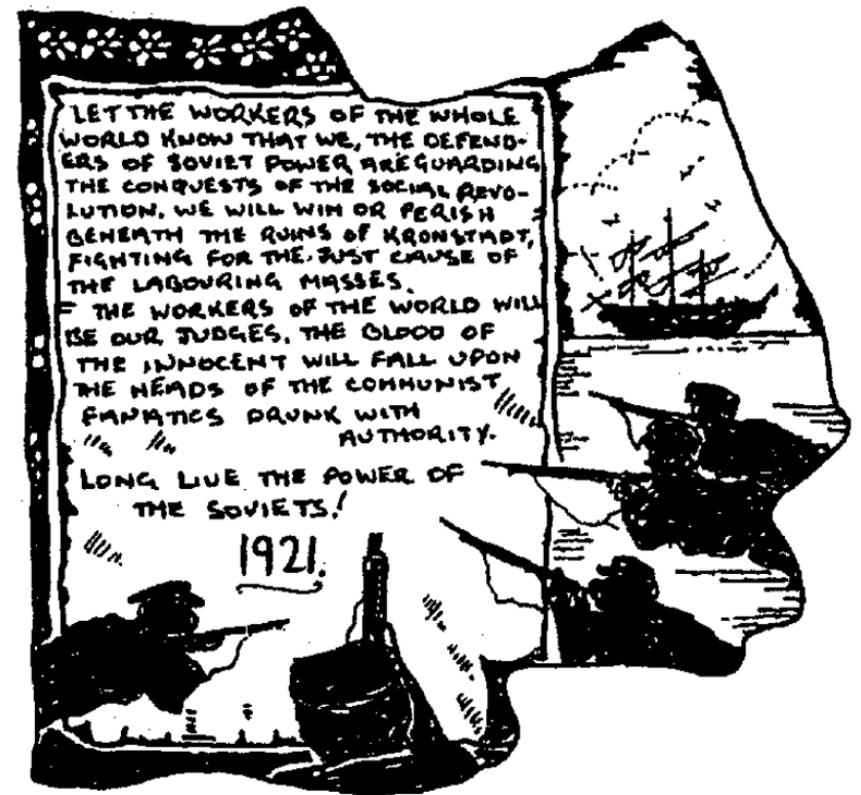 LET THE WORKERS OF THE WHOLE
WORLD KNOW THAT WE, THE DEFEND-
ERS OF SOVIET POWER ARE GUARDING
THE CONQUESTS OF THE SOCIAL REVO-
LUTION. WE WILL WIN OR PERISH
BENEATH THE RUINS OF KRONSTADT,
FIGHTING FOR THE JUST CAUSE OF
THE LABOURING MASSES.
THE WORKERS OF THE WORLD WILL
BE OUR JUDGES. THE BLOOD OF
THE INNOCENT WILL FALL UPON
THE HEADS OF THE COMMUNIST
FANATICS DRUNK WITH
AUTHORITY.
LONG LIVE THE POWER OF
THE SOVIETS!
1921.